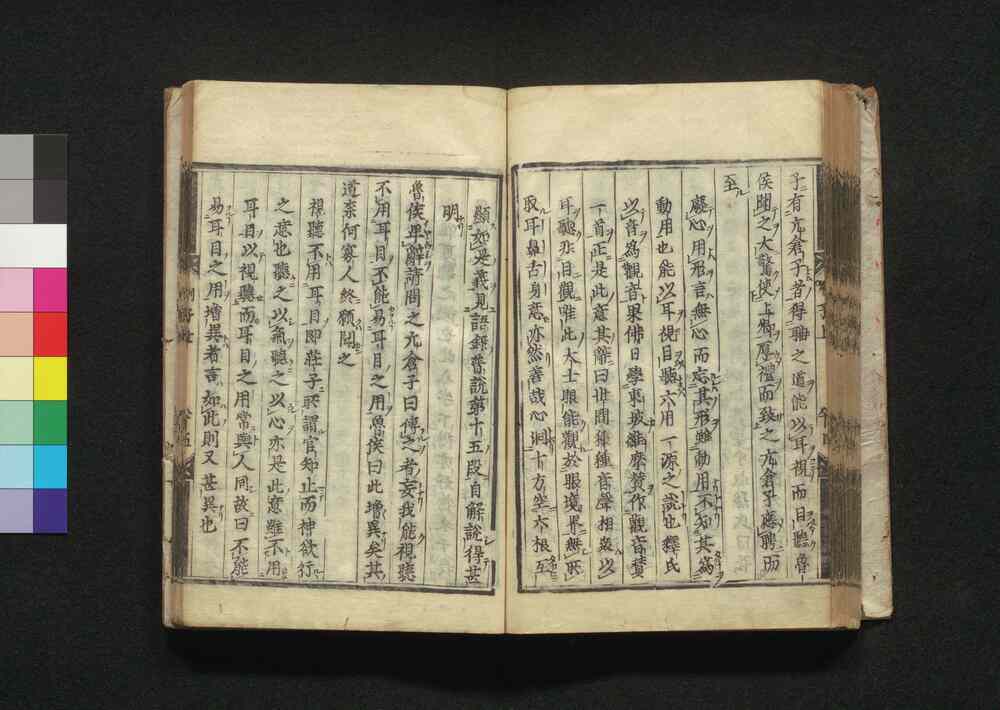 子有亢倉子者得聃之道能以耳視而目聽魯
侯聞之大驚使上卿厚禮而致之亢倉子應聘而
至
廢心用形言無心而忘其形雖動用不知其爲
動用也能以耳視目聽六用一源之說也釋氏
以音爲觀音果佛日學東坡維摩贊作觀音贊
一首正是此意其辭曰世間種種音聲相衆以
耳聽非目觀唯此大士眼能觀於眼境界無所
取耳鼻舌身意亦然善哉心洞十方空六根互
顯如是義見語錄普說第十五段自解說得甚
明
魯侯卑辭請問之亢倉子曰傳之者妄我能視聽
不用耳目不能易耳目之用魯侯曰此增異矣其
道柰何寡人終願聞之
視聽不用耳目即莊子所謂官知止而神欲行
之意也聽之以氣聽之以心亦是此意雖不用
耳目以視聽而耳目之用常與人同故曰不能
易耳目之用增異者言如此則又甚異也